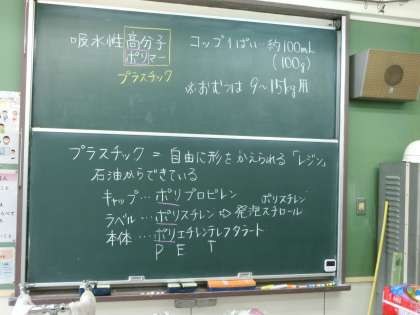 吸水性高分子
ポリマー
プラスチック
コップ1ぱい…約100mL
(100g)
※おむつは 9〜15kg用
プラスチック = 自由に形をかえられる「レジン」
石油からできている
キャップ…ポリプロピレン
ラベル…ポリスチレン⇨発泡スチロール
ポリスチレン
本体…ポリエチレンテレフタラート
P E T